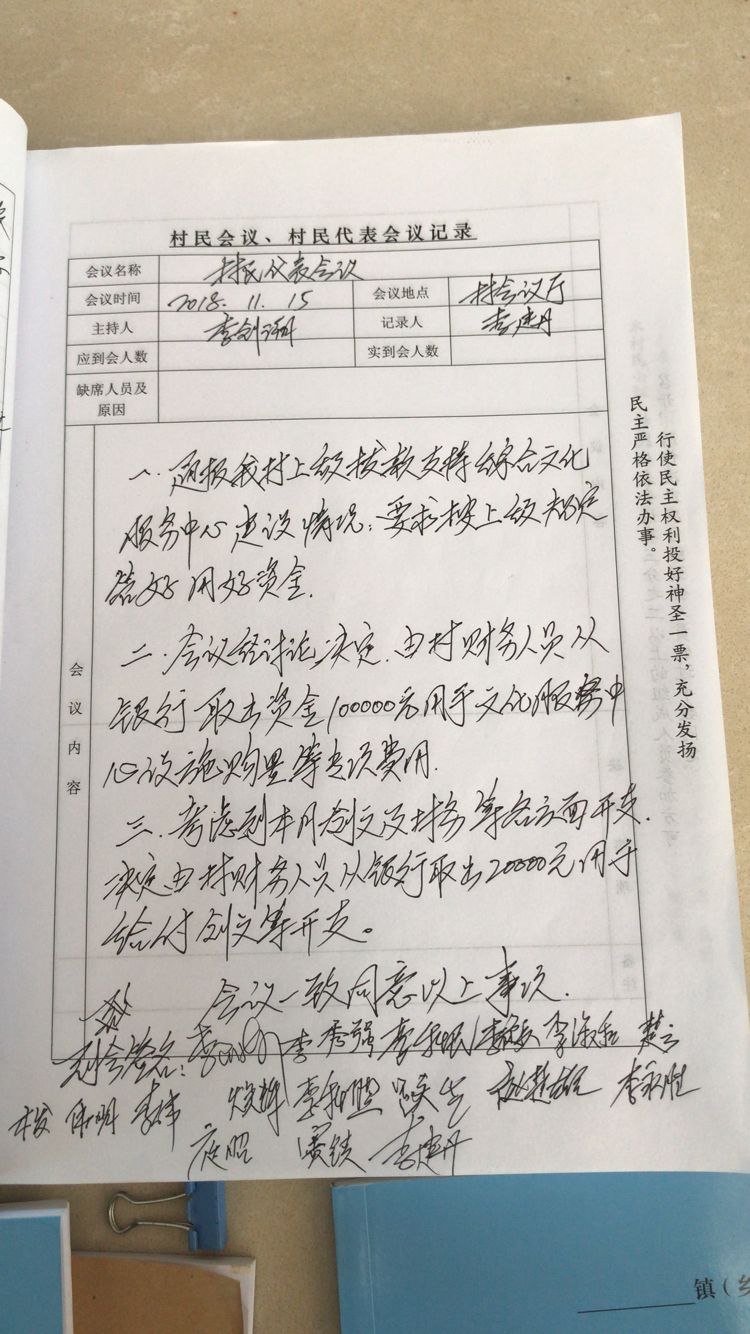 村民会议、村民代表会议记录
会议名称 村民代表会议
会议时间 2018.11.15 会议地点 村会议厅
主持人 李创 记录人 李建丹
应到会人数 实到会人数
缺席人员及
原因
会议内容
一.通报我村上级拨款支持综合文化
服务中心建设情况;要求按上级规定
管好用好资金.
二.会议经讨论决定.由村财务人员从
银行取出资金100000元用于文化服务中
心设施购置等专项费用.
三.考虑到本月创文及村务等各方面开支.
决定由村财务人员从银行取出20000元用于
给付创文等开支。
会议一致同意以上事项.
到会签名: 李秀强 李淑 楚云
李伟 焕雄 李永胜
庭昭 李建丹
行使民主权利投好神圣一票,充分发扬
民主严格依法办事。
镇(乡